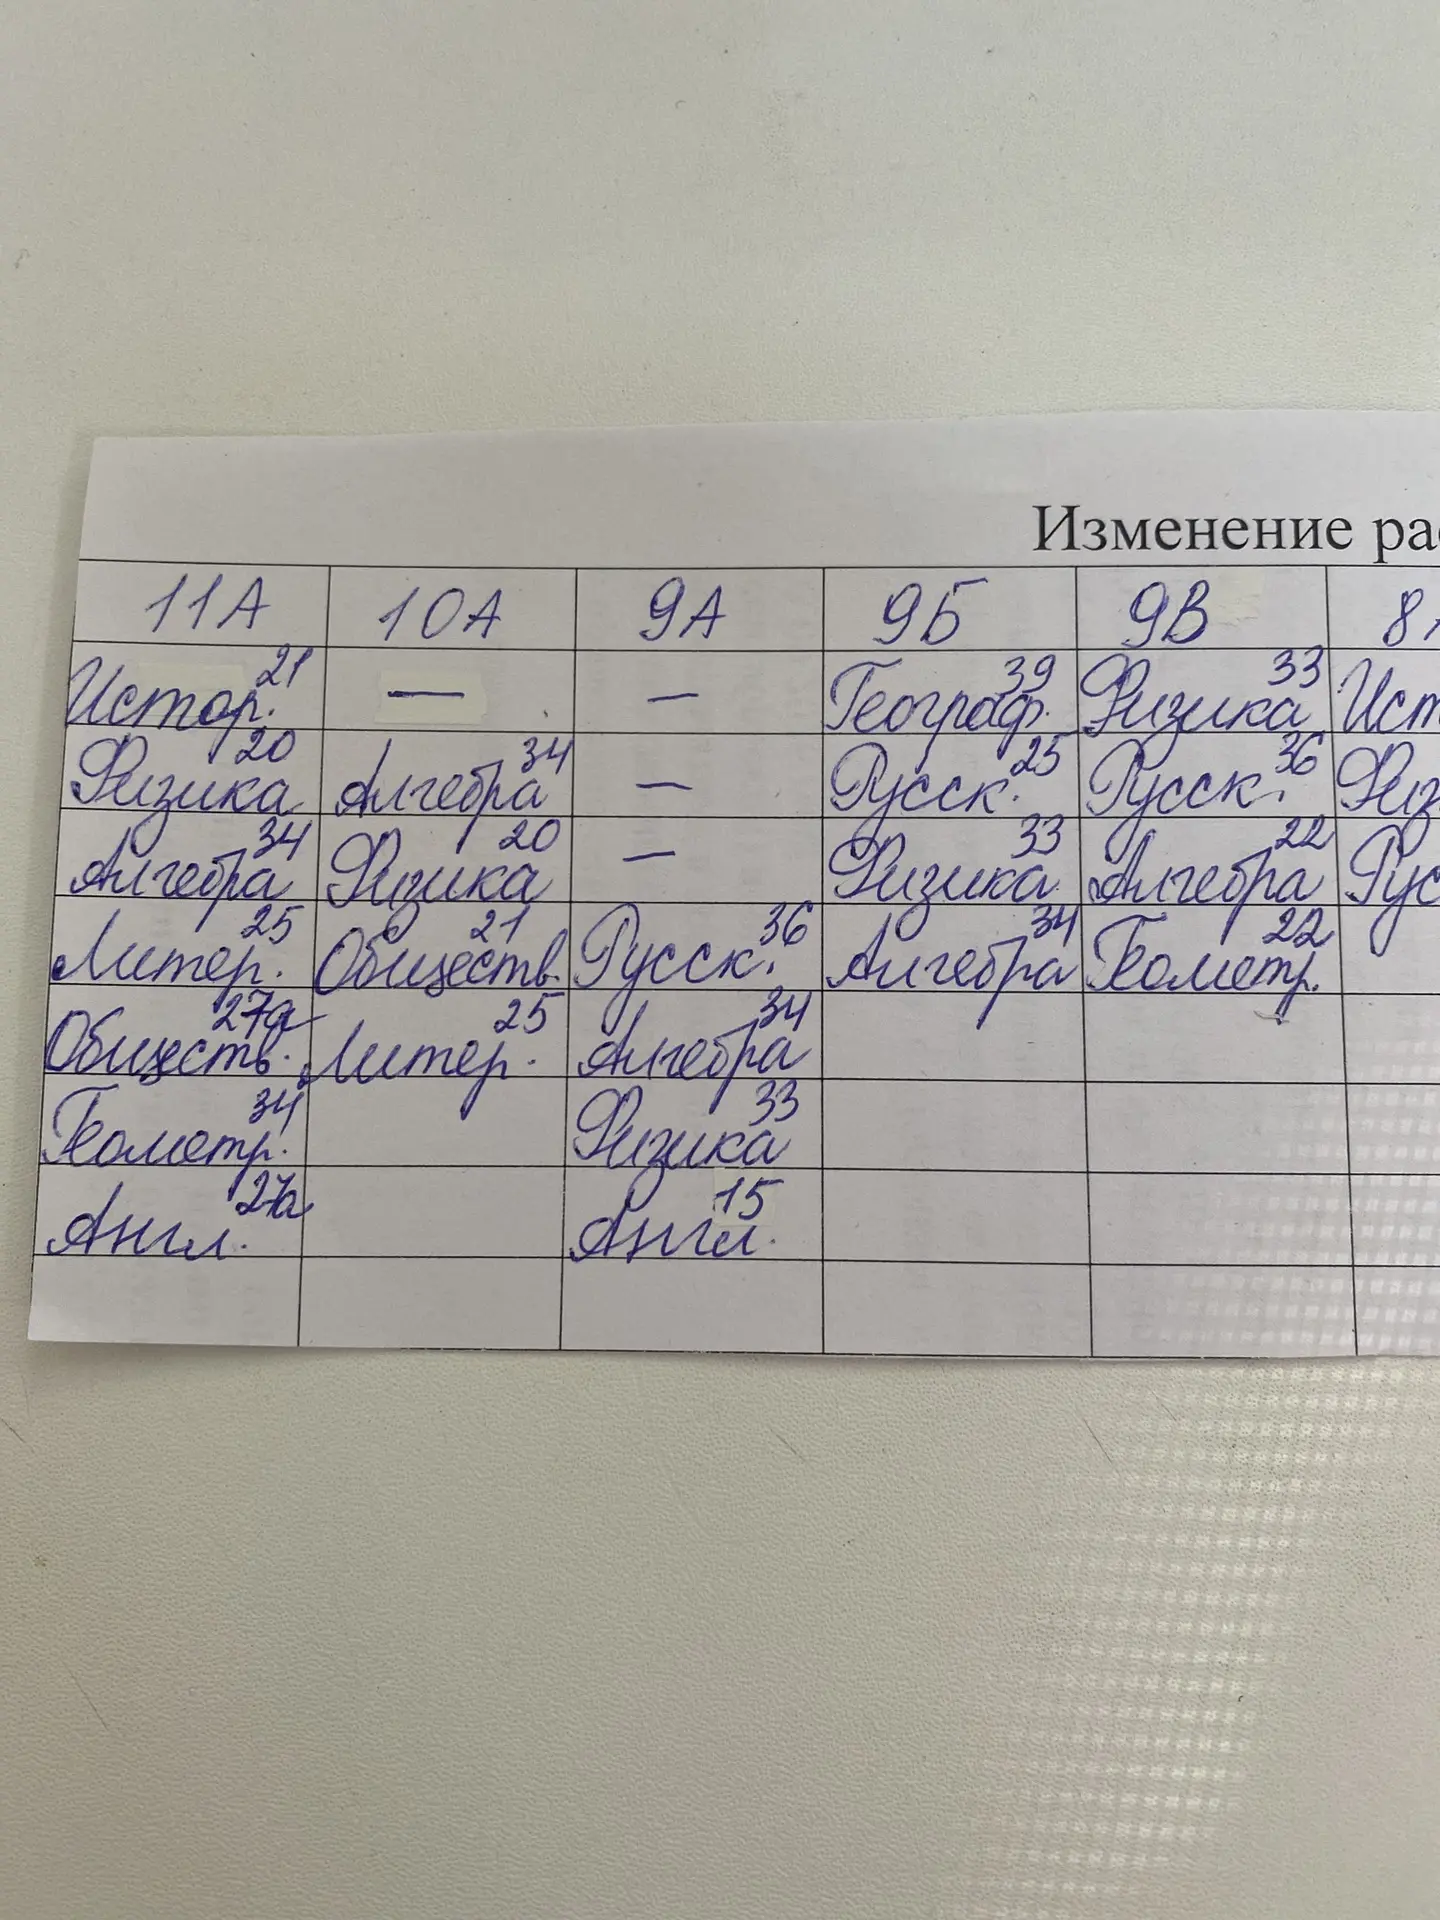 Изменение рас
11А 10А 9А 9Б 9В 8А
Истор. 21 — — Географ. 39 Физика 33 Ист
Физика 20 Алгебра 34 — Русск. 25 Русск. 36 Физ
Алгебра 34 Физика 20 — Физика 33 Алгебра 22 Рус
Литер. 25 Обществ. 21 Русск. 36 Алгебра 34 Геометр. 22
Обществ. 27а Литер. 25 Алгебра 34
Геометр. 34 Физика 33
Англ. 27а Англ. 15